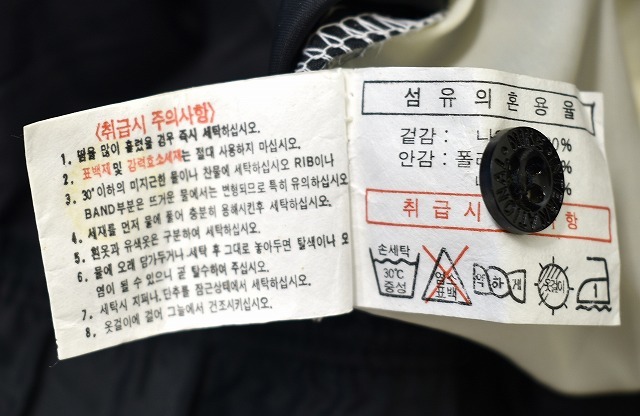 〈취급시 주의사항〉
1. 땀을 많이 흘렸을 경우 즉시 세탁하십시오.
2. 표백제 및 강력효소세제는 절대 사용하지 마십시오.
3. 30°이하의 미지근한 물이나 찬물에 세탁하십시오 RIB이나
BAND부분은 뜨거운 물에서는 변형되므로 특히 유의하십시오
4. 세제를 먼저 물에 풀어 충분히 용해시킨후 세탁하십시오.
5. 흰옷과 유색옷은 구분하여 세탁하십시오.
6. 물에 오래 담가두거나 세탁 후 그대로 놓아두면 탈색이나 오
염이 될 수 있으니 곧 탈수하여 주십시오.
7. 세탁시 지퍼나, 단추를 잠근상태에서 세탁하십시오.
8. 옷걸이에 걸어 그늘에서 건조시키십시오.
섬유의혼용율
겉감 : 0%
안감 : 폴 %
%
취급시 항
손세탁
30℃
중성
염소
표백
약하게
옷걸이
1